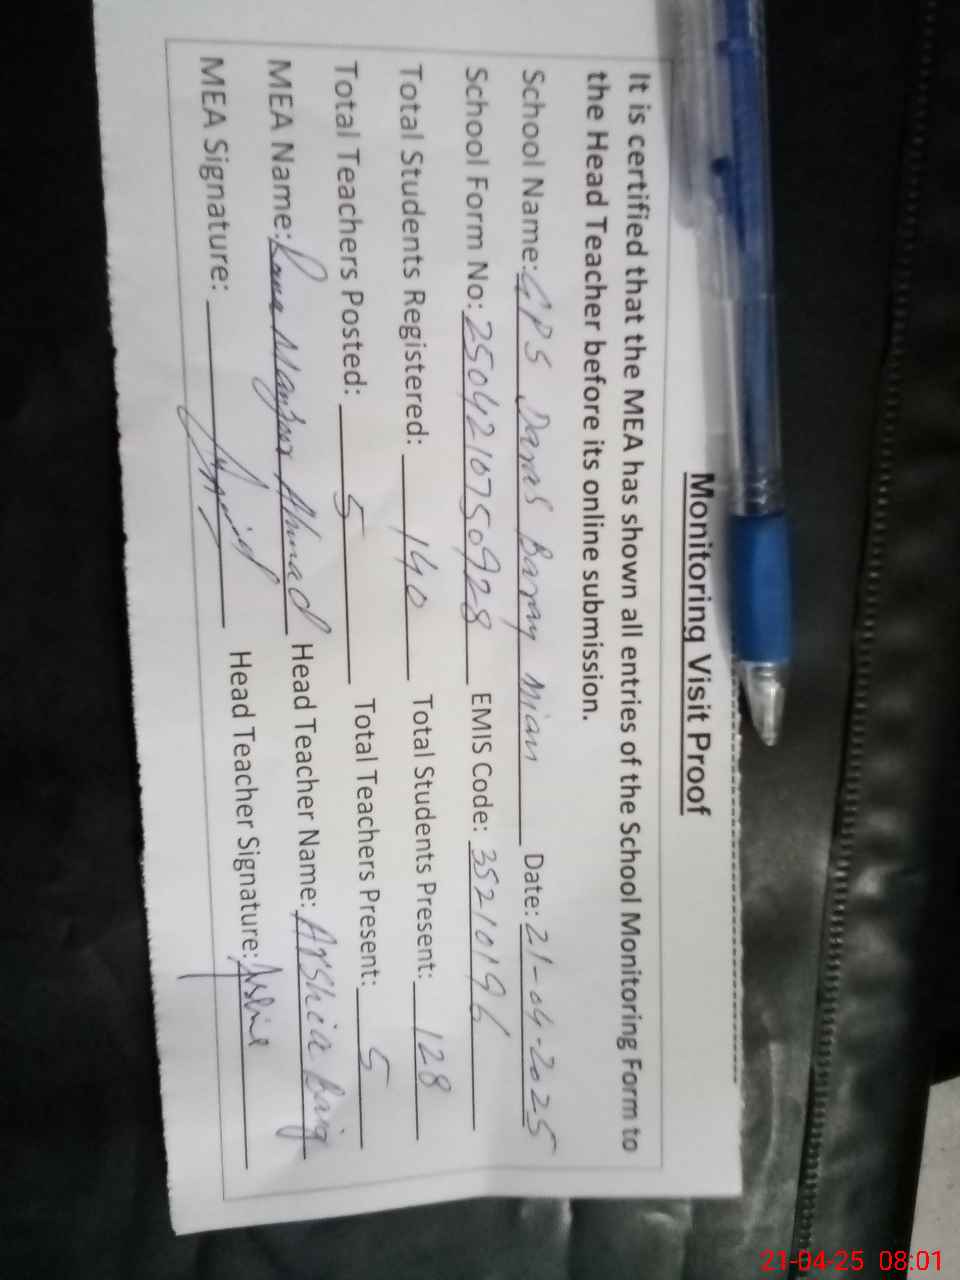 Monitoring Visit Proof
It is certified that the MEA has shown all entries of the School Monitoring Form to
the Head Teacher before its online submission.
School Name: GPS Daras Baray Mian Date: 21-04-2025
School Form No: 2504210750928 EMIS Code: 35210196
Total Students Registered: 140 Total Students Present: 128
Total Teachers Posted: 5 Total Teachers Present: 5
MEA Name: Rana Ahmad Head Teacher Name: Arshia Baig
MEA Signature: Head Teacher Signature: Arshia
21-04-25 08:01